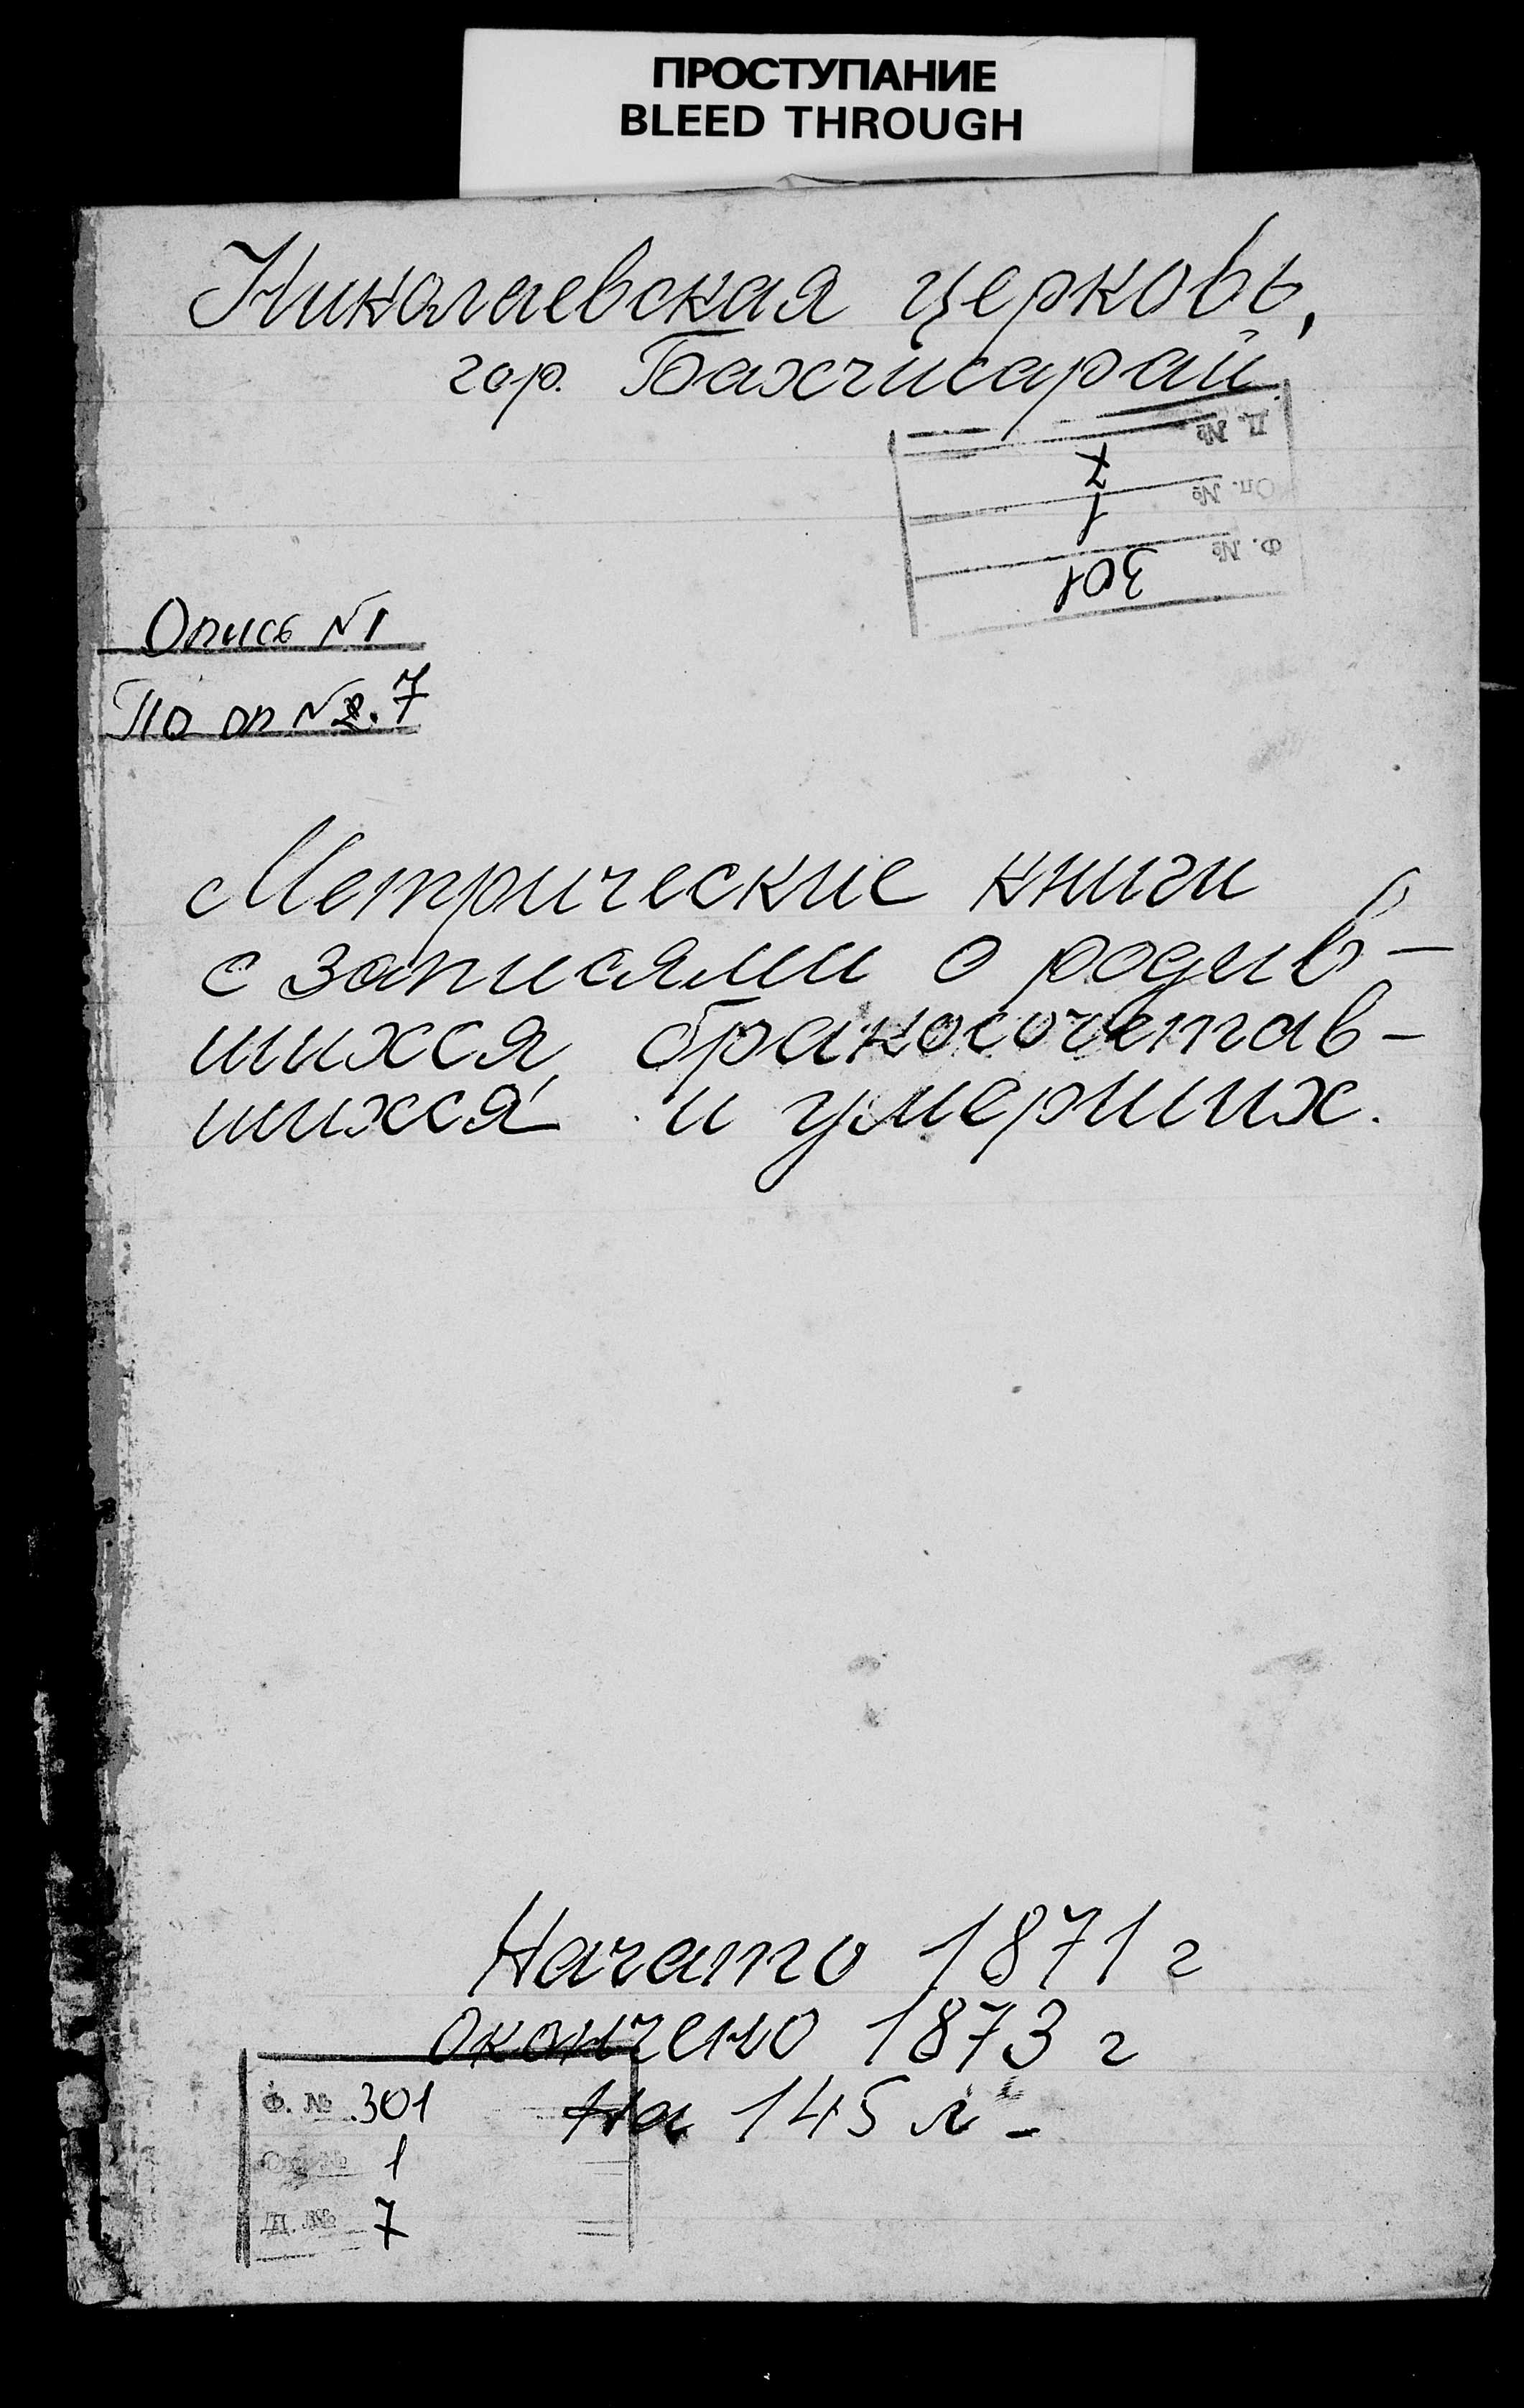 ПРОСТУПАНИЕ
BLEED THROUGH
Николаевская церковь,
гор. Бахчисарай
Д. № 7
Оп. № 1
Ф. № 301
Опись №1
По оп № 7
Метрические книги
с записями о родив-
шихся, бракосочетав-
шихся и умерших.
Начато 1871 г
окончено 1873 г
на 145 л-
Ф. № 301
Оп. № 1
Д. № 7